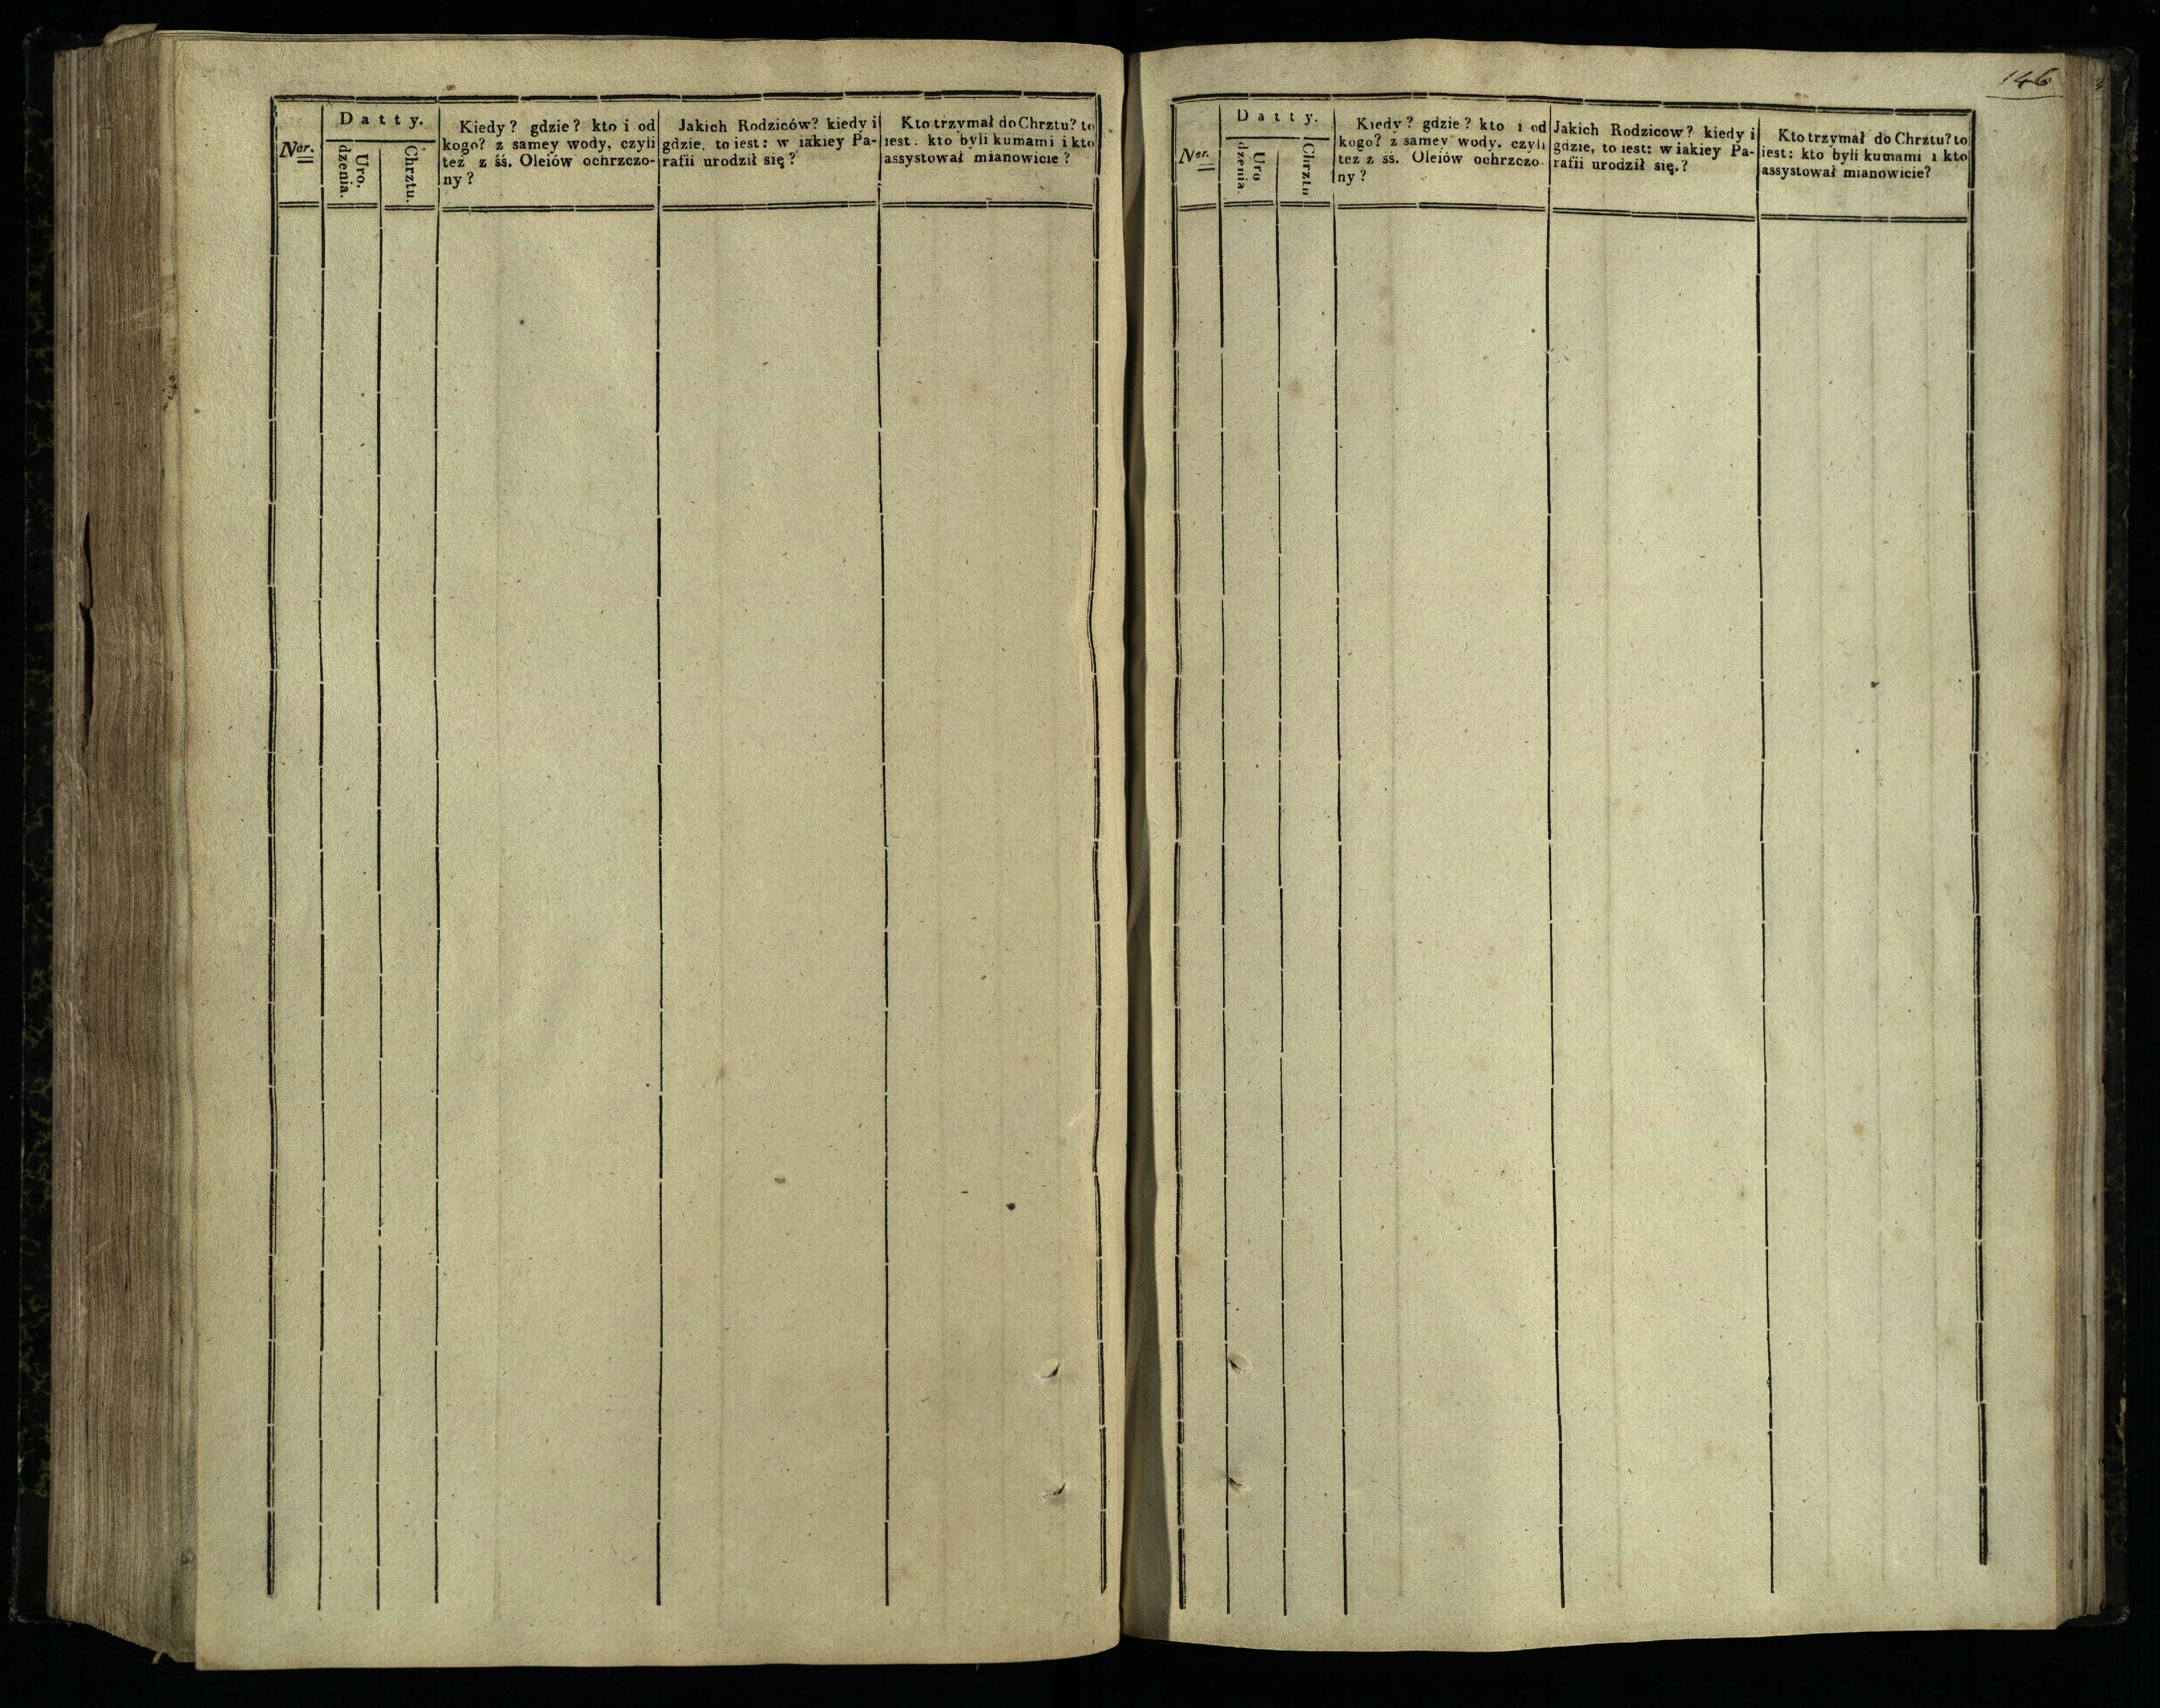 Ner.
Datty.
Uro.
dzenia.
Chrztu.
Kiedy? gdzie? kto i od
kogo? z samey wody, czyli
też z śś. Oleiów ochrzczo-
ny?
Jakich Rodziców? kiedy i
gdzie, to iest: w iakiey Pa-
rafii urodził się?
Kto trzymał do Chrztu? to
iest. kto byli kumami i kto
assystował mianowicie?
146
Ner.
Datty.
Uro
dzenia.
Chrztu
Kiedy? gdzie? kto i od
kogo? z samey wody, czyli
tez z ss. Oleiów ochrzczo-
ny?
Jakich Rodzicow? kiedy i
gdzie, to iest: w iakiey Pa-
rafii urodził się.?
Kto trzymał do Chrztu? to
iest: kto byli kumami i kto
assystował mianowicie?